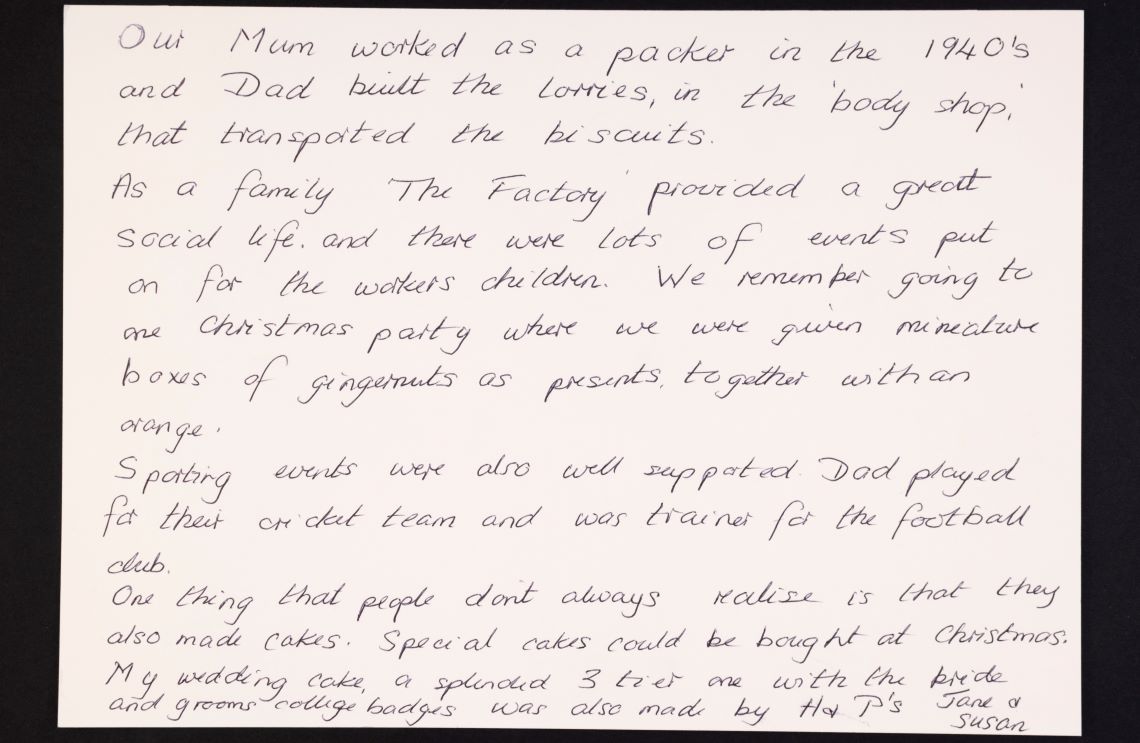 Our Mum worked as a packer in the 1940's
and Dad built the lorries, in the 'body shop,'
that transported the biscuits.
As a family 'The Factory' provided a great
social life. and there were lots of events put
on for the workers children. We remember going to
one Christmas party where we were given mineature
boxes of gingernuts as presents, together with an
orange.
Sporting events were also well supported. Dad played
for their cricket team and was trainer for the football
club.
One thing that people don't always realise is that they
also made cakes. Special cakes could be bought at Christmas.
My wedding cake, a splended 3 tier one with the bride
and grooms college badges was also made by H & P's Jane &
Susan